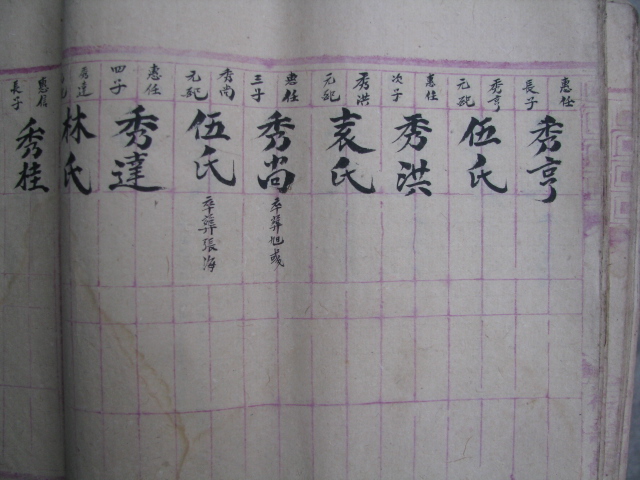 惠任
長子
秀亨
秀亨
元配
伍氏
惠任
次子
秀洪
秀洪
元配
袁氏
惠任
三子
秀尚
卒葬旭彧
秀尚
元配
伍氏
卒葬張海
惠任
四子
秀達
秀達
林氏
惠信
長子
秀桂